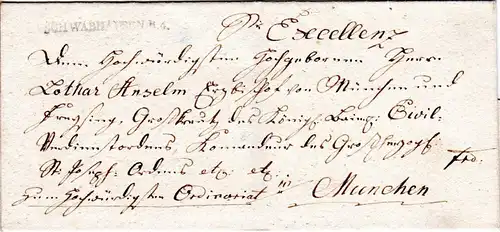 SCHWABHAUSEN R.4.
Sr Excellenz
Dem Hochwürdigsten Hochgebornen Herrn
Lothar Anselm Erzbischof von München und
Freysing, Großkreutz des Königl. Baier. Civil-
Verdienstordens, Komandeur des Großherzogl.
St: Joseph-Ordens etc. etc.
frd.
zum Hochwürdigsten Ordinariat in München